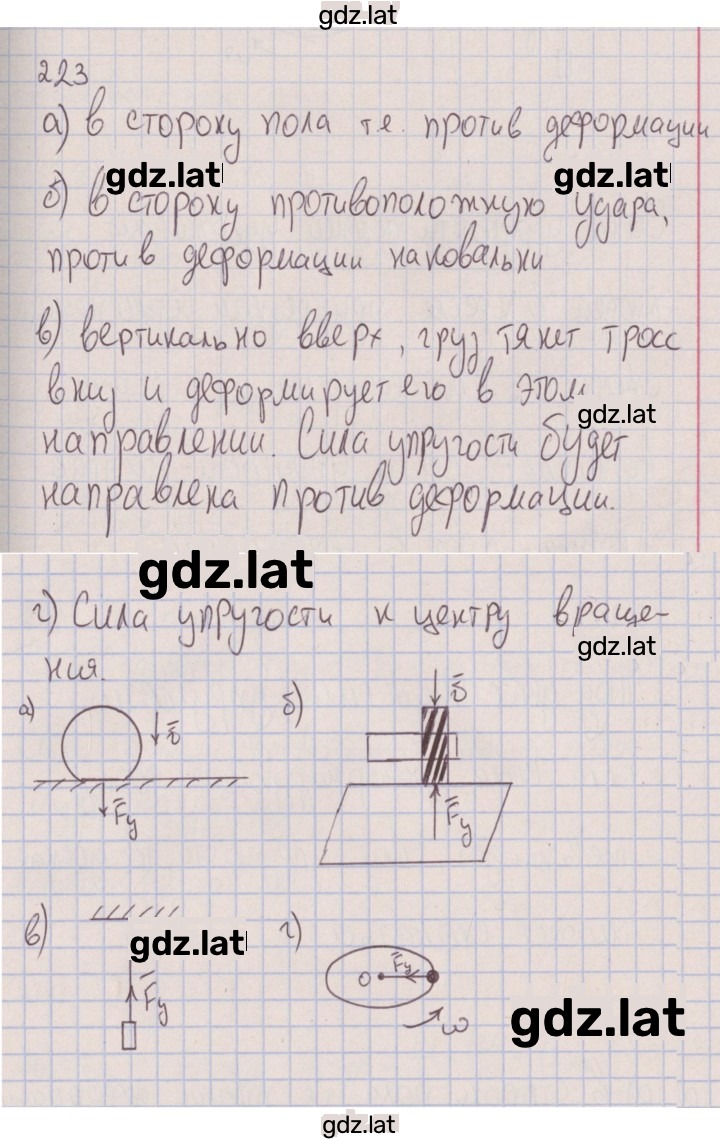 gdz.lat
223
а) в сторону пола т.е. против деформации
gdz.lat gdz.lat
б) в сторону противоположную удара,
против деформации наковальни
в) вертикально вверх, груз тянет тросс
вниз и деформирует его в этом
gdz.lat
направлении. Сила упругости будет
направлена против деформации.
gdz.lat
г) Сила упругости к центру враще-
gdz.lat
ния.
а) б) v̄
v̄
F̄у F̄у
в) г)
gdz.lat
F̄у O F̄у
gdz.lat
ω
gdz.lat